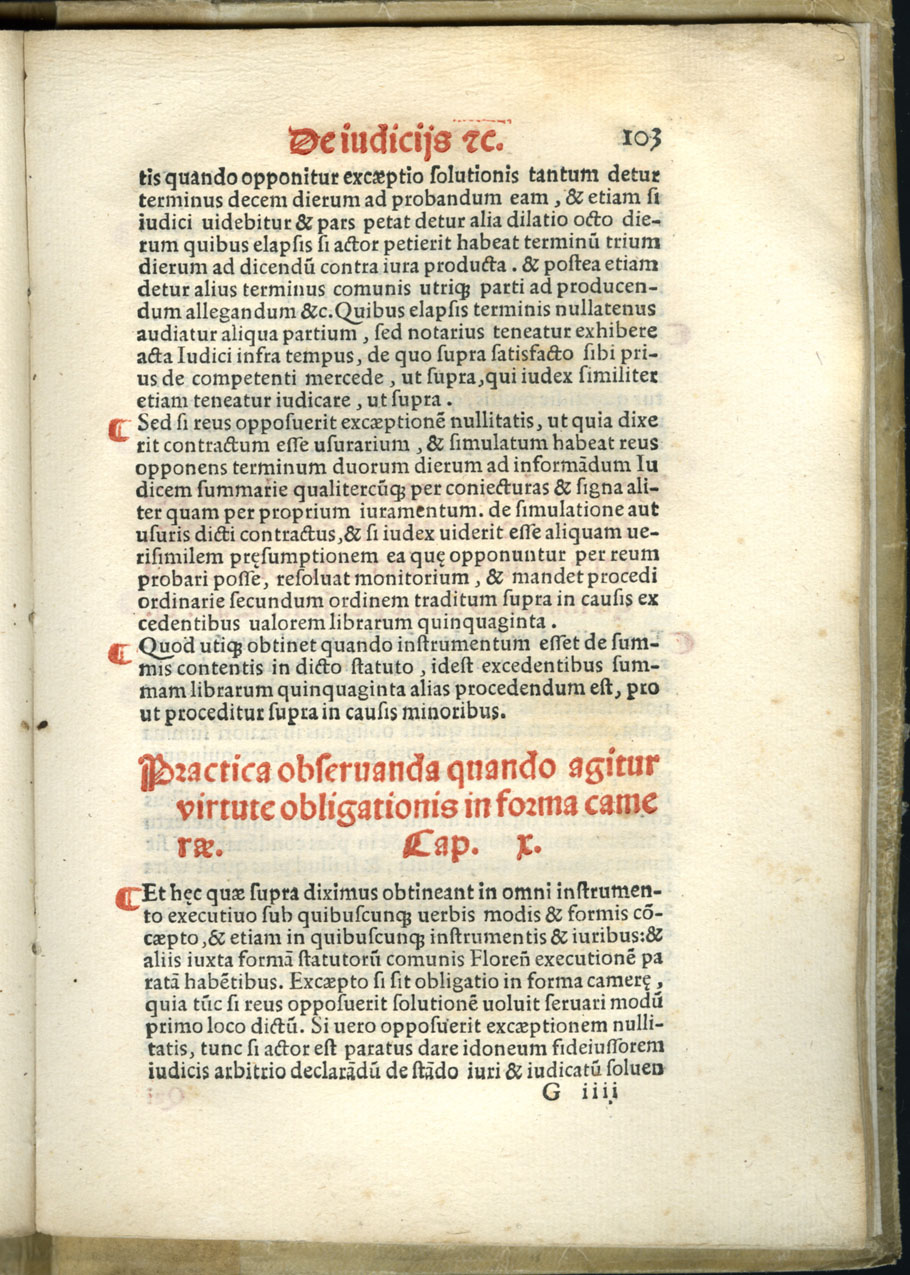 De iudicijs ⁊c. 103
tis quando opponitur excæptio ſolutionis tantum detur
terminus decem dierum ad probandum eam, & etiam ſi
iudici uidebitur & pars petat detur alia dilatio octo die-
rum quibus elapſis ſi actor petierit habeat terminū trium
dierum ad dicendū contra iura producta. & poſtea etiam
detur alius terminus comunis utriqꝫ parti ad producen-
dum allegandum &c. Quibus elapſis terminis nullatenus
audiatur aliqua partium, ſed notarius teneatur exhibere
acta Iudici infra tempus, de quo ſupra ſatisfacto ſibi pri-
us de competenti mercede, ut ſupra, qui iudex ſimiliter
etiam teneatur iudicare, ut ſupra.
¶ Sed ſi reus oppoſuerit excæptionē nullitatis, ut quia dixe
rit contractum eſſe uſurarium, & ſimulatum habeat reus
opponens terminum duorum dierum ad informādum Iu
dicem ſummarie qualitercūqꝫ per coniecturas & ſigna ali-
ter quam per proprium iuramentum. de ſimulatione aut
uſuris dicti contractus, & ſi iudex uiderit eſſe aliquam ue-
riſimilem pręſumptionem ea quę opponuntur per reum
probari poſſe, reſoluat monitorium, & mandet procedi
ordinarie ſecundum ordinem traditum ſupra in cauſis ex
cedentibus ualorem librarum quinquaginta.
¶ Quod utiqꝫ obtinet quando inſtrumentum eſſet de ſum-
mis contentis in dicto ſtatuto, ideſt excedentibus ſum-
mam librarum quinquaginta alias procedendum eſt, pro
ut proceditur ſupra in cauſis minoribus.
Practica obſeruanda quando agitur
virtute obligationis in forma came
ræ. Cap. x.
¶ Et hęc quæ ſupra diximus obtineant in omni inſtrumen-
to executiuo ſub quibuſcunqꝫ uerbis modis & formis cō-
cæpto, & etiam in quibuſcunqꝫ inſtrumentis & iuribus: &
aliis iuxta formā ſtatutorū comunis Floren̄ executionē pa
ratā habētibus. Excæpto ſi ſit obligatio in forma camerę,
quia tūc ſi reus oppoſuerit ſolutionē uoluit ſeruari modū
primo loco dictū. Si uero oppoſuerit excæptionem nulli-
tatis, tunc ſi actor eſt paratus dare idoneum fideiuſſorem
iudicis arbitrio declarādū de ſtādo iuri & iudicatū ſoluen
G iiij